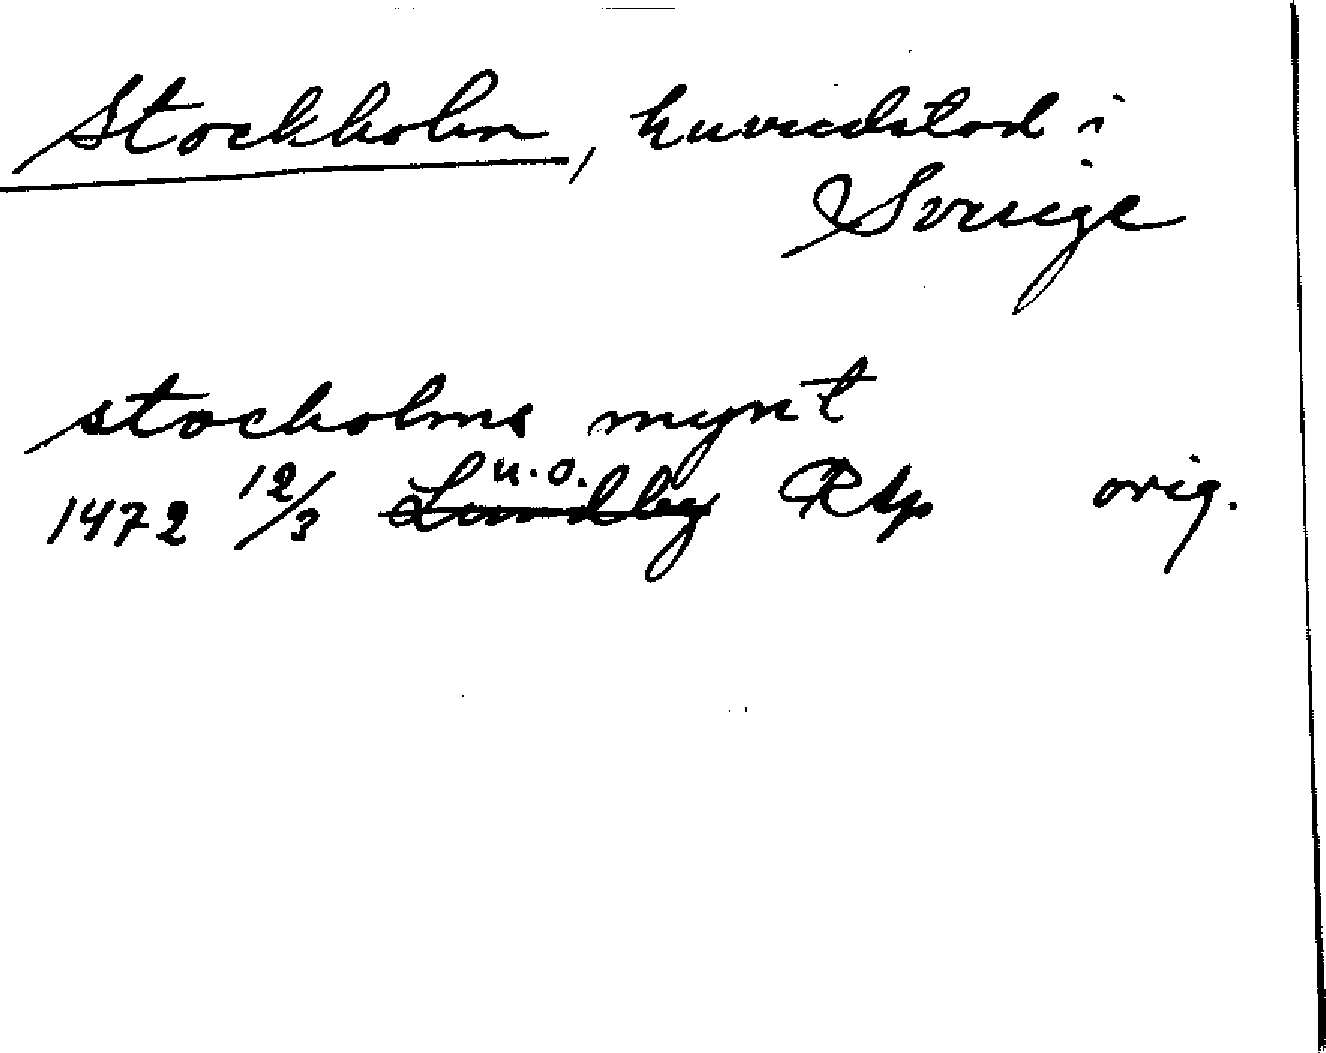 Stockholm, huvudstad i
Sverige
stocholms mynt
1472 12/3 Lundby u.o. RAp orig.